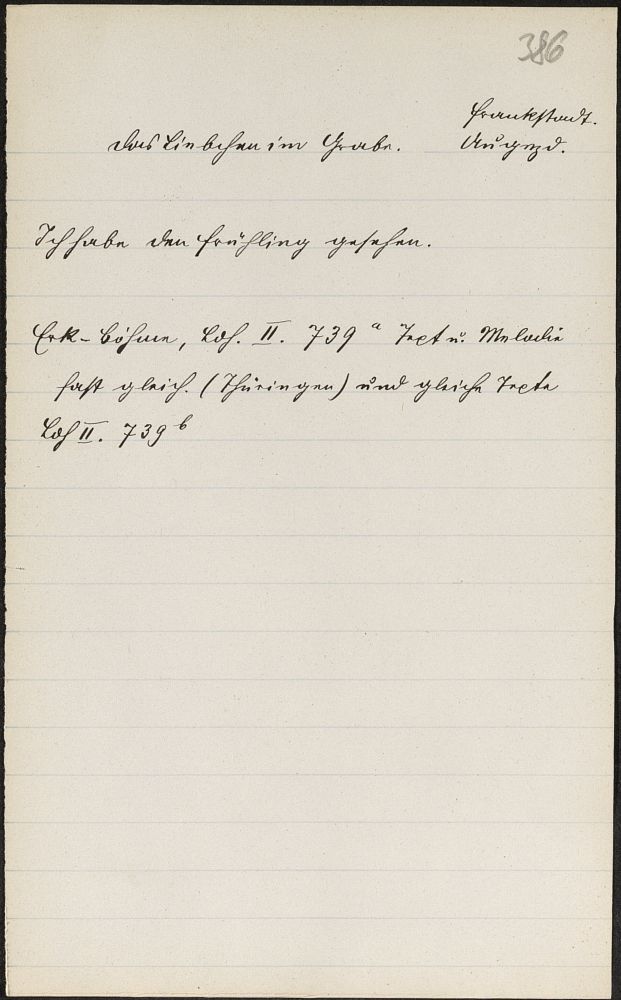 386
Frankstadt.
Das Liebchen im Grabe. Augezd.
Ich habe den Frühling gesehen.
Erk-Böhme, Ldh. II. 739 a Text u. Melodie
fast gleich. (Thüringen) und gleiche Texte
Ldh II. 739 b